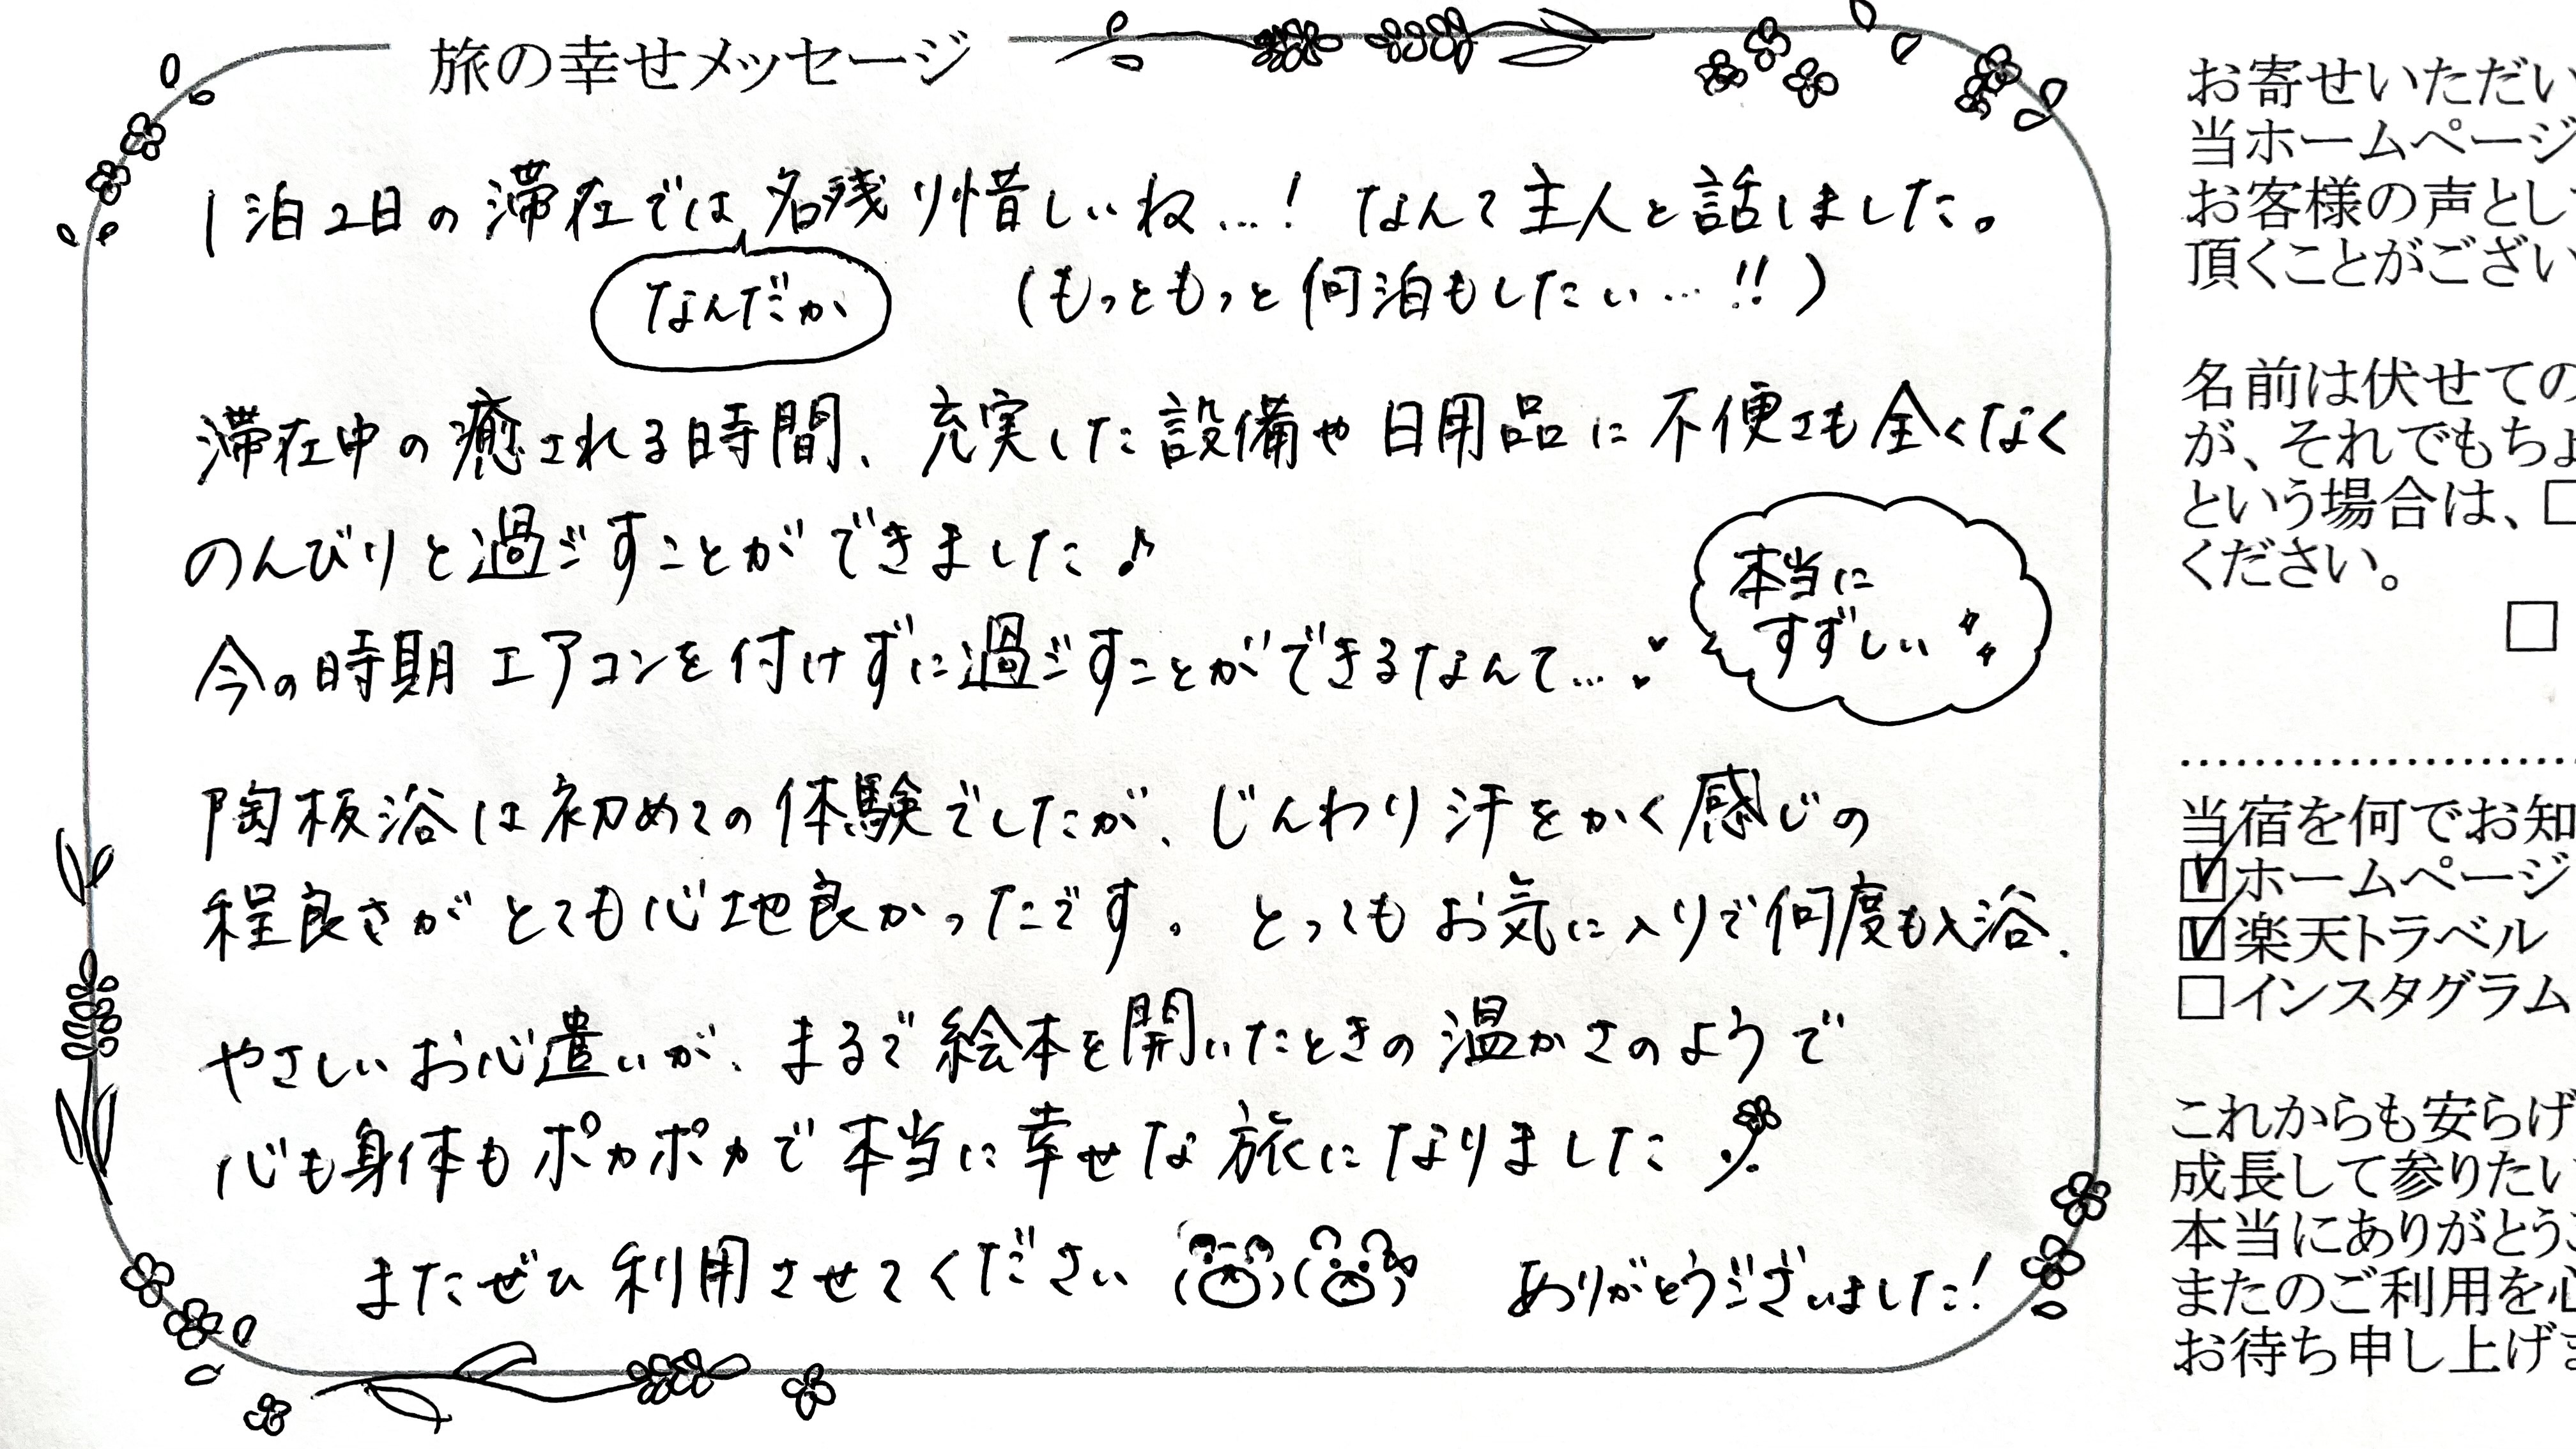 旅の幸せメッセージ
1泊2日の滞在では名残り惜しいね…! なんて主人と話しました。
なんだか
(もっともっと何泊もしたい…!!)
滞在中の癒される時間、充実した設備や日用品に不便さも全くなく
のんびりと過ごすことができました♪
今の時期エアコンを付けずに過ごすことができるなんて…
本当に
すずしい
陶板浴は初めての体験でしたが、じんわり汗をかく感じの
程良さがとても心地良かったです。とってもお気に入りで何度も入浴.
やさしいお心遣いが、まるで絵本を開いたときの温かさのようで
心も身体もポカポカで本当に幸せな旅になりました
またぜひ利用させてください ありがとうございました!
お寄せいただい
当ホームページ
お客様の声とし
頂くことがござい
名前は伏せての
が、それでもちょ
という場合は、□
ください。
□
当宿を何でお知
☑ホームページ
☑楽天トラベル
□インスタグラム
これからも安らげ
成長して参りたい
本当にありがとうご
またのご利用を心
お待ち申し上げま